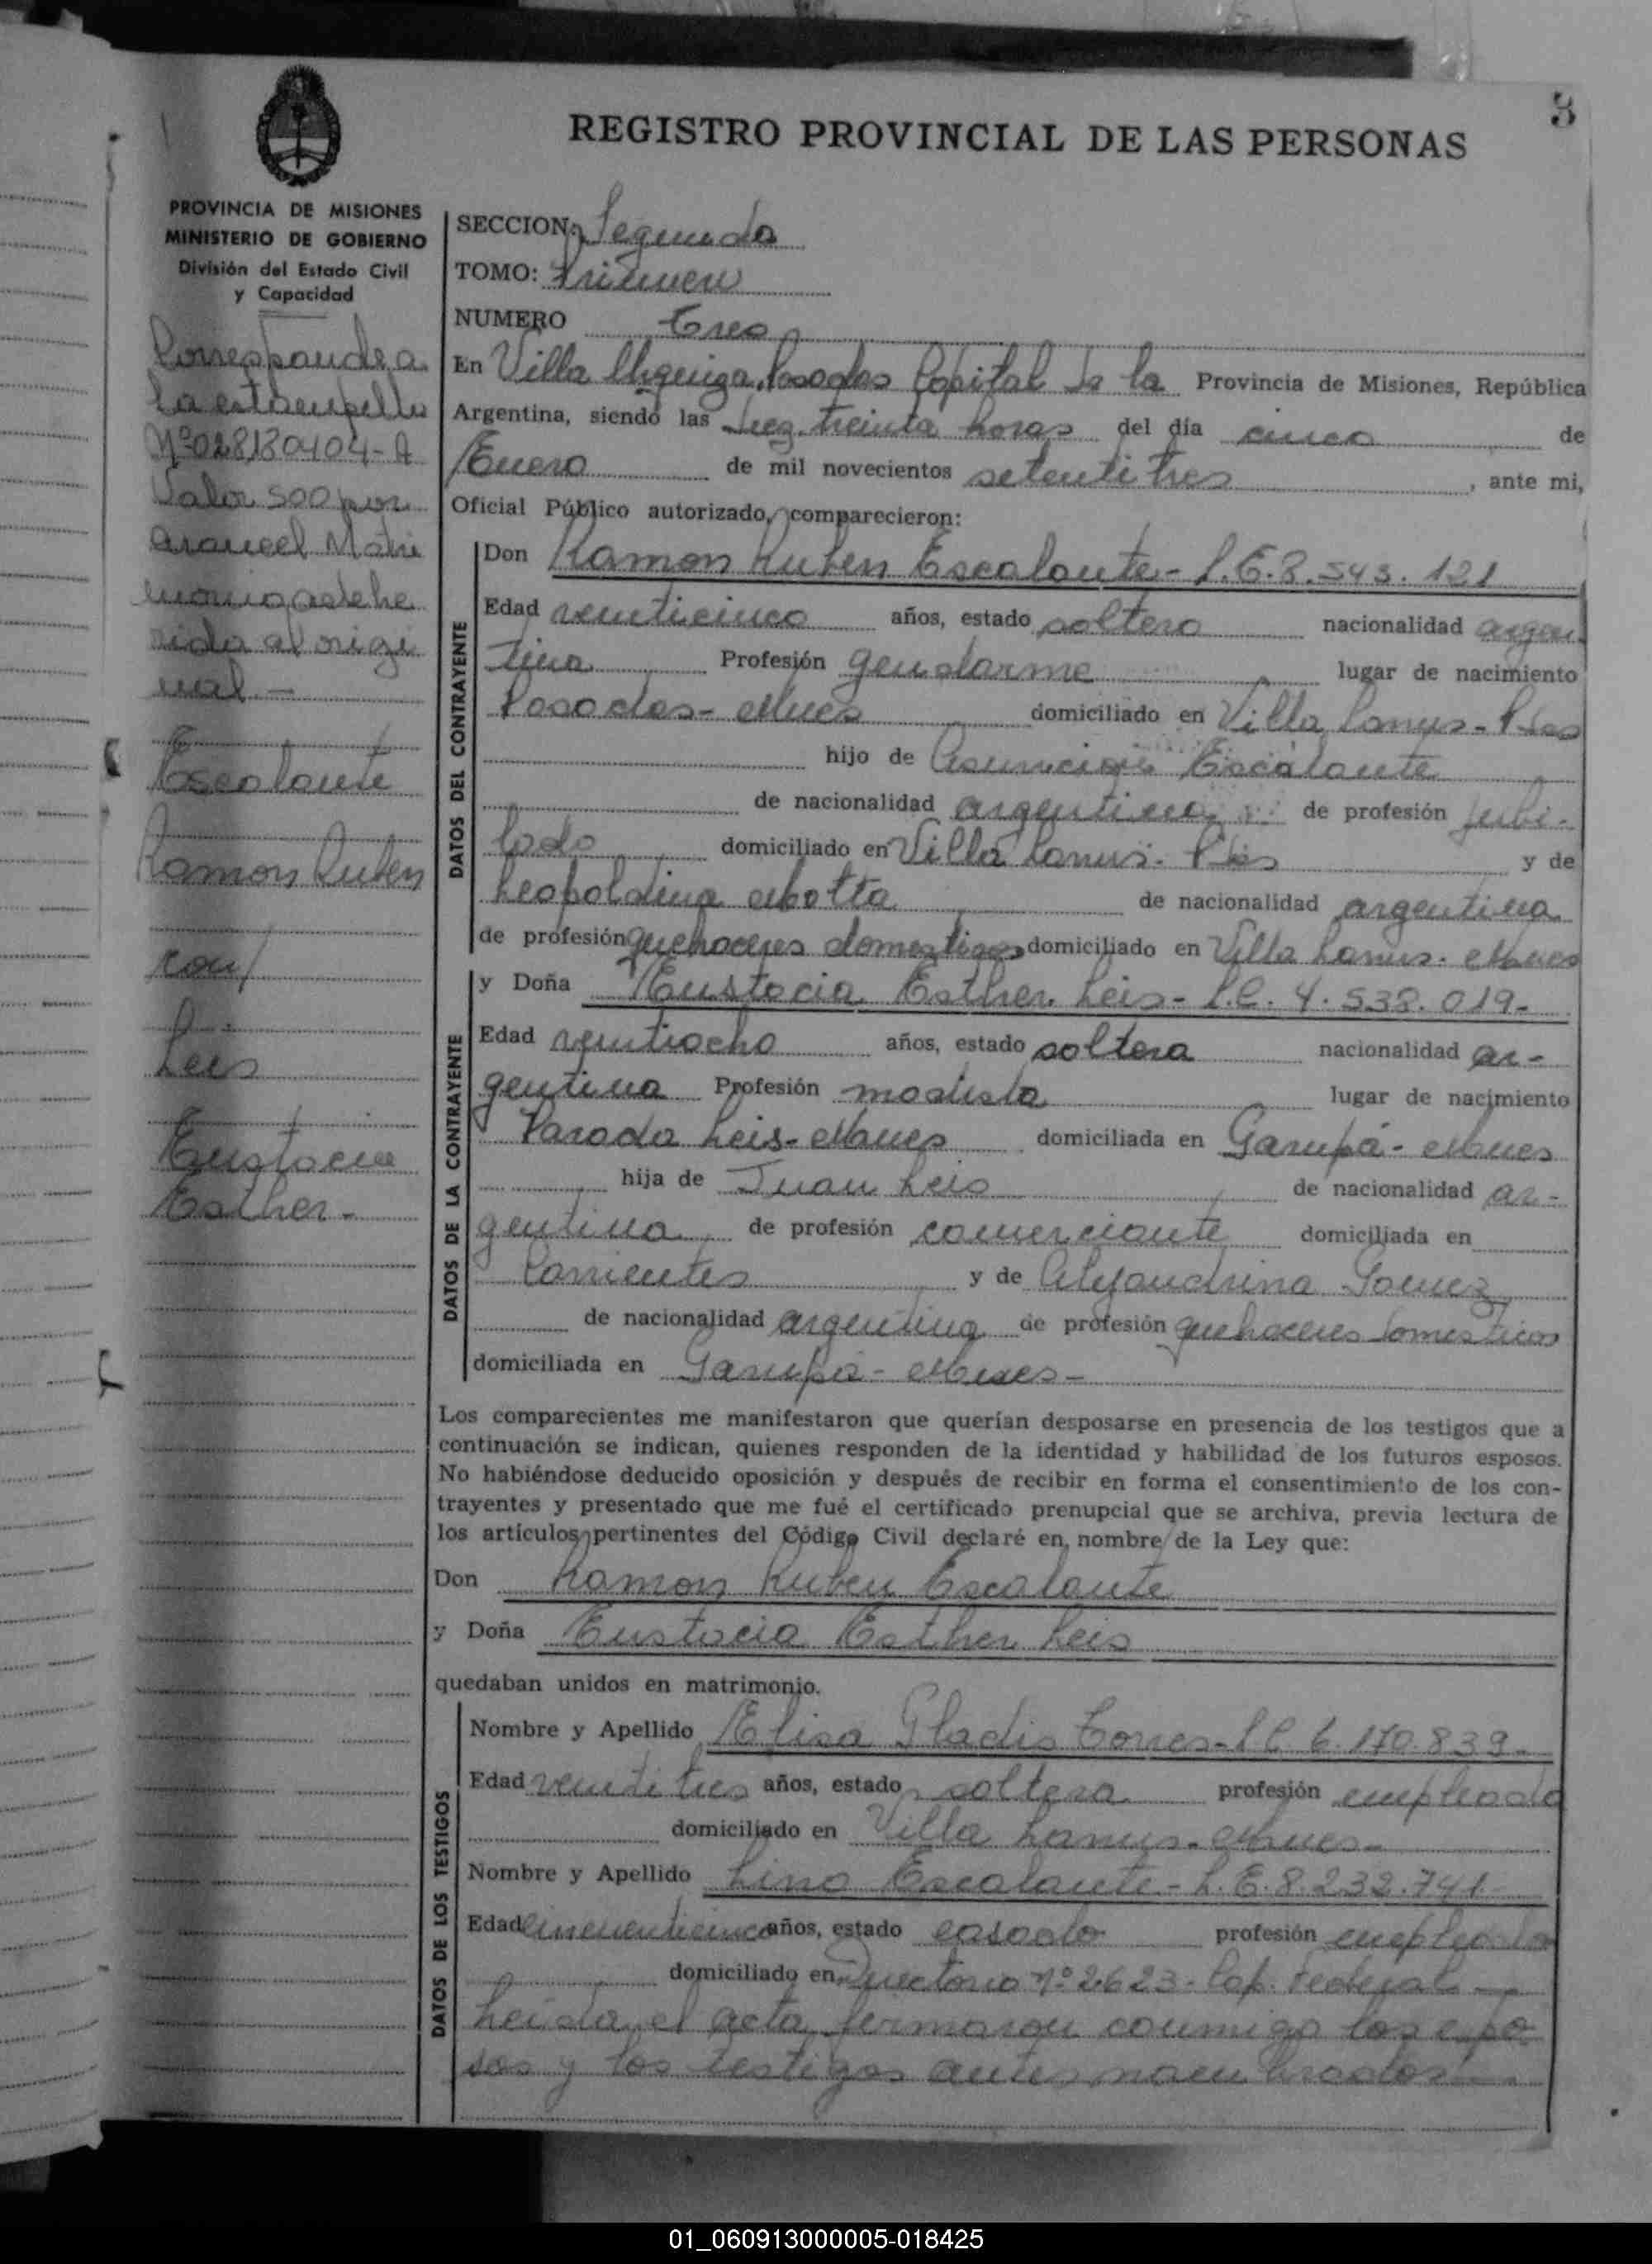 3
REGISTRO PROVINCIAL DE LAS PERSONAS
PROVINCIA DE MISIONES
MINISTERIO DE GOBIERNO
División del Estado Civil
y Capacidad
Corresponde a
la estampilla
Nº 028130404-A
Valor 500 por
arancel Matri
monio adhe
rida al origi
nal -
Escalante
Ramon Ruben
con/
Leis
Eustocia
Esther -
SECCION: Segunda
TOMO: Primero
NUMERO Tres
En Villa Posadas Capital de la Provincia de Misiones, República
Argentina, siendo las diez treinta horas del día cinco de
Enero de mil novecientos setenti tres, ante mi,
Oficial Público autorizado, comparecieron:
DATOS DEL CONTRAYENTE
Don Ramon Ruben Escalante - L.E. 8.543.121
Edad venticinco años, estado soltero nacionalidad argen
tina Profesión gendarme lugar de nacimiento
Posadas - Mnes domiciliado en Villa Lanus - Pdas
hijo de Asuncion Escalante
de nacionalidad argentina de profesión jubi-
lado domiciliado en Villa Lanus - Pdas y de
Leopoldina Motta de nacionalidad argentina
de profesión quehaceres domesticos domiciliado en Villa Lanus - Mnes
DATOS DE LA CONTRAYENTE
y Doña Eustocia Esther Leis - L.C. 4.538.019-
Edad ventiocho años, estado soltera nacionalidad ar-
gentina Profesión modista lugar de nacimiento
Parada Leis - Mnes domiciliada en Garupá - Mnes
hija de Juan Leis de nacionalidad ar-
gentina de profesión comerciante domiciliada en
Corrientes y de Alejandrina Gomez
de nacionalidad argentina de profesión quehaceres domesticos
domiciliada en Garupá - Mnes -
Los comparecientes me manifestaron que querían desposarse en presencia de los testigos que a
continuación se indican, quienes responden de la identidad y habilidad de los futuros esposos.
No habiéndose deducido oposición y después de recibir en forma el consentimiento de los con-
trayentes y presentado que me fué el certificado prenupcial que se archiva, previa lectura de
los artículos pertinentes del Código Civil declaré en nombre de la Ley que:
Don Ramon Ruben Escalante
y Doña Eustocia Esther Leis
quedaban unidos en matrimonio.
DATOS DE LOS TESTIGOS
Nombre y Apellido Elisa Gladis Torres - L.C. 6.170.839-
Edad venti tres años, estado soltera profesión empleada
domiciliado en Villa Lanus - Mnes -
Nombre y Apellido Lino Escalante - L.E. 8.232.741
Edad cincuenticinco años, estado casado profesión empleado
domiciliado en Directorio nº 2623 - Cap. Federal -
Leida el acta firmaron conmigo los espo
sos y los testigos antes nombrados
01_060913000005-018425